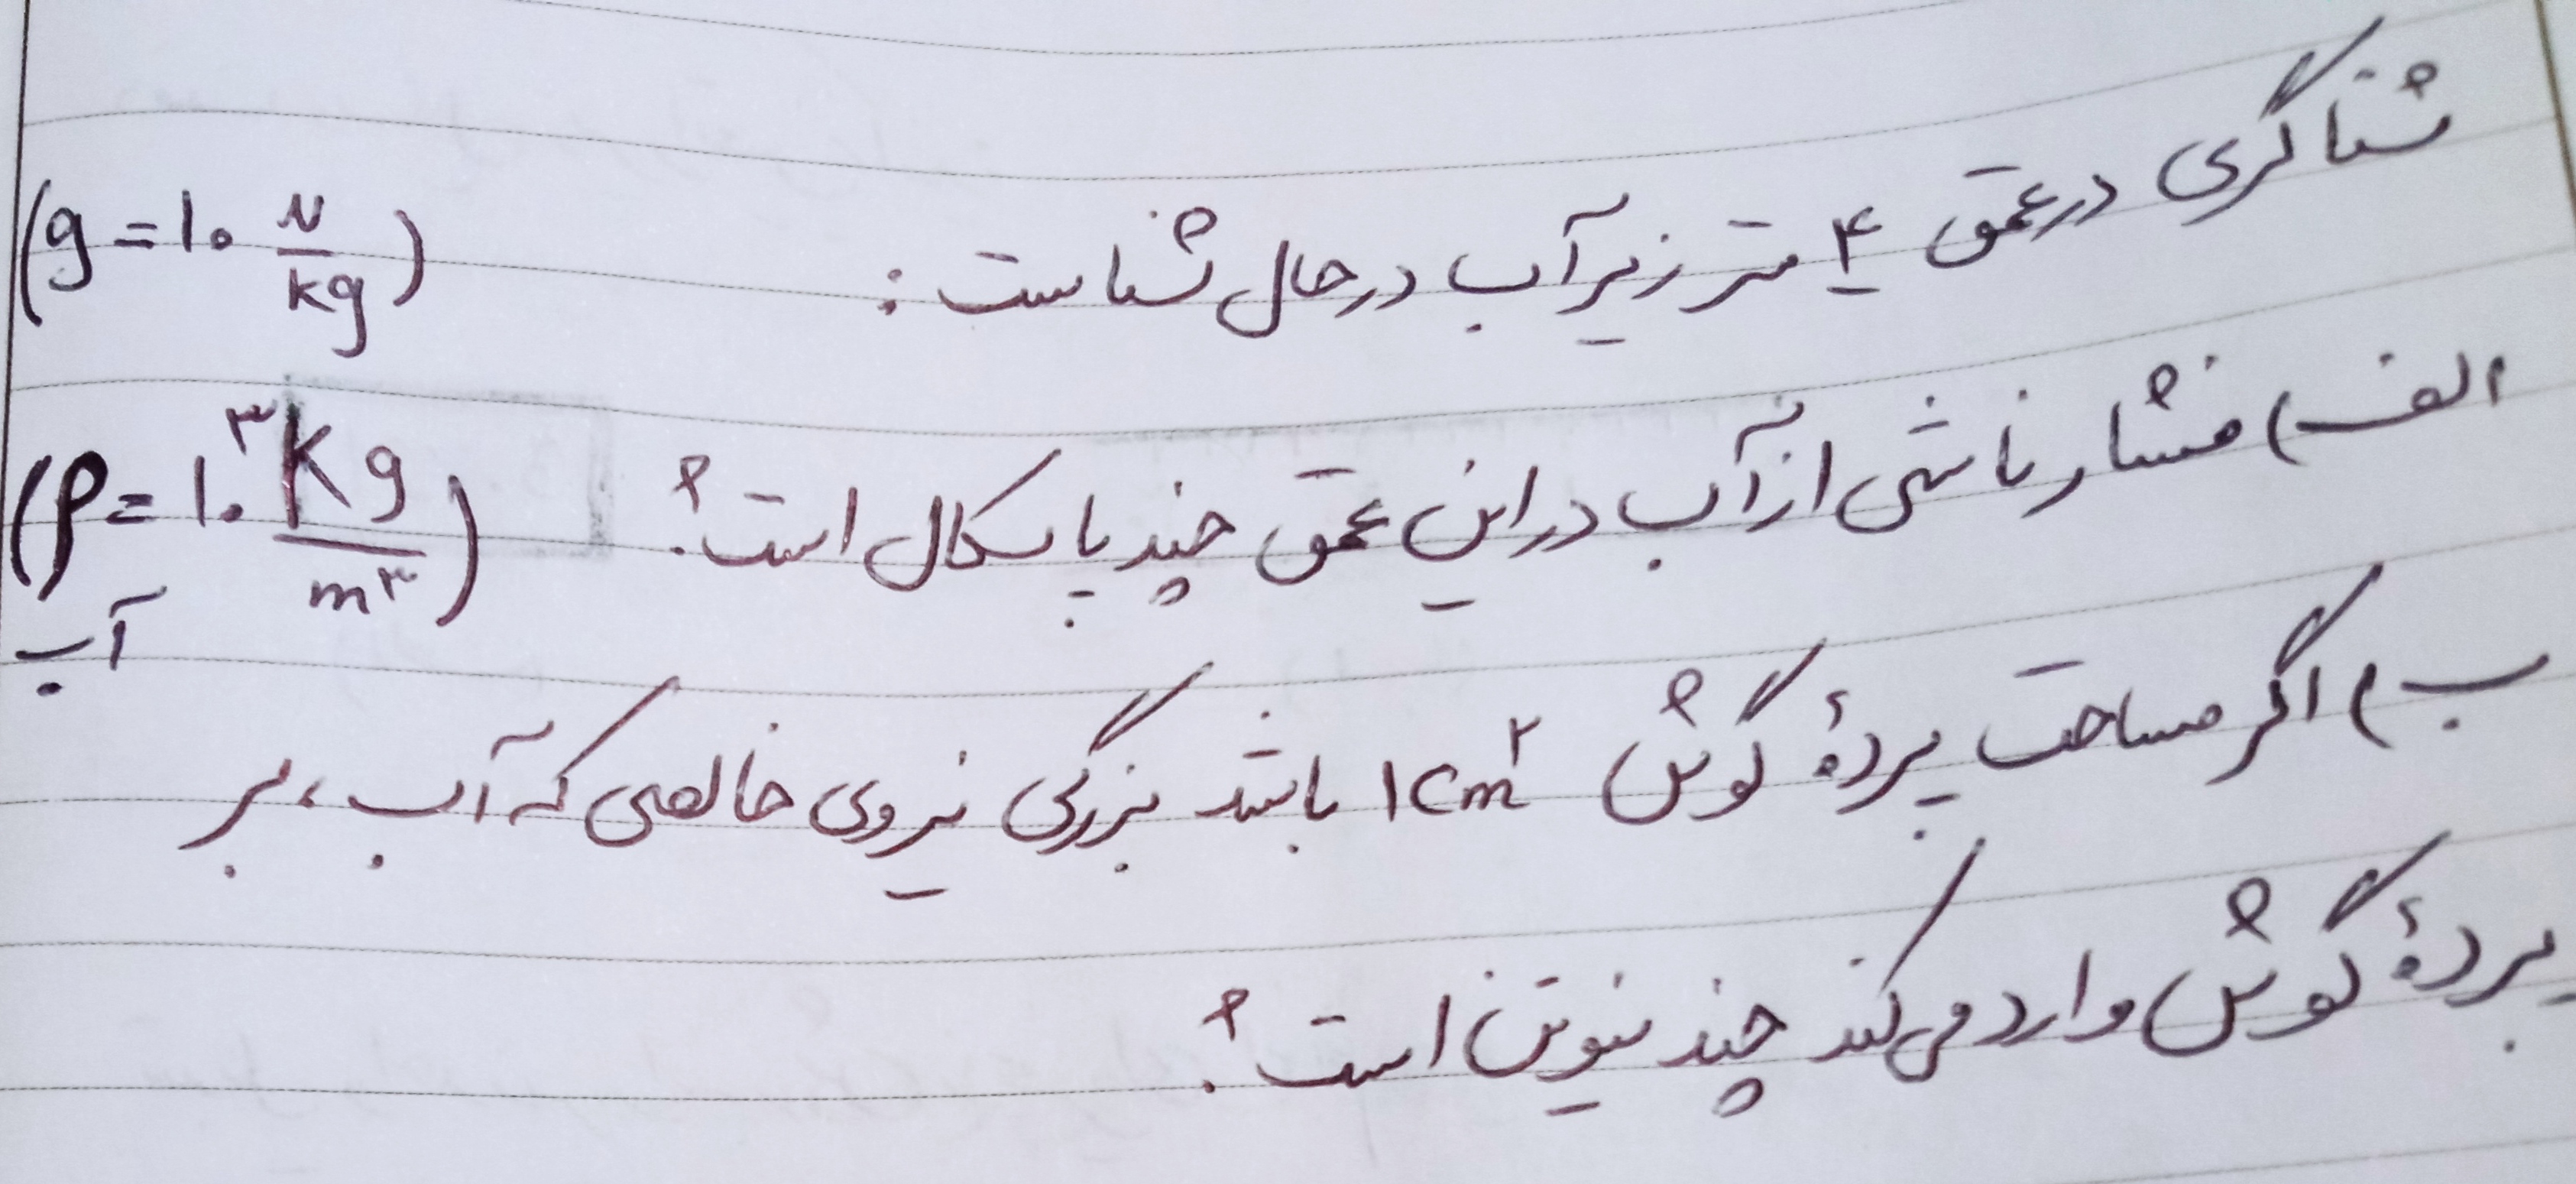 شناگری در عمق ۴ متر زیر آب در حال شناست : (g = ۱۰ N/kg)
الف) فشار ناشی از آب در این عمق چند پاسکال است؟ (ρ = ۱۰^۳ kg/m^۳)
آب
ب) اگر مساحت پردهٔ گوش ۱cm^۲ باشد بزرگی نیروی خالصی که آب، بر
پردهٔ گوش وارد می‌کند چند نیوتن است؟